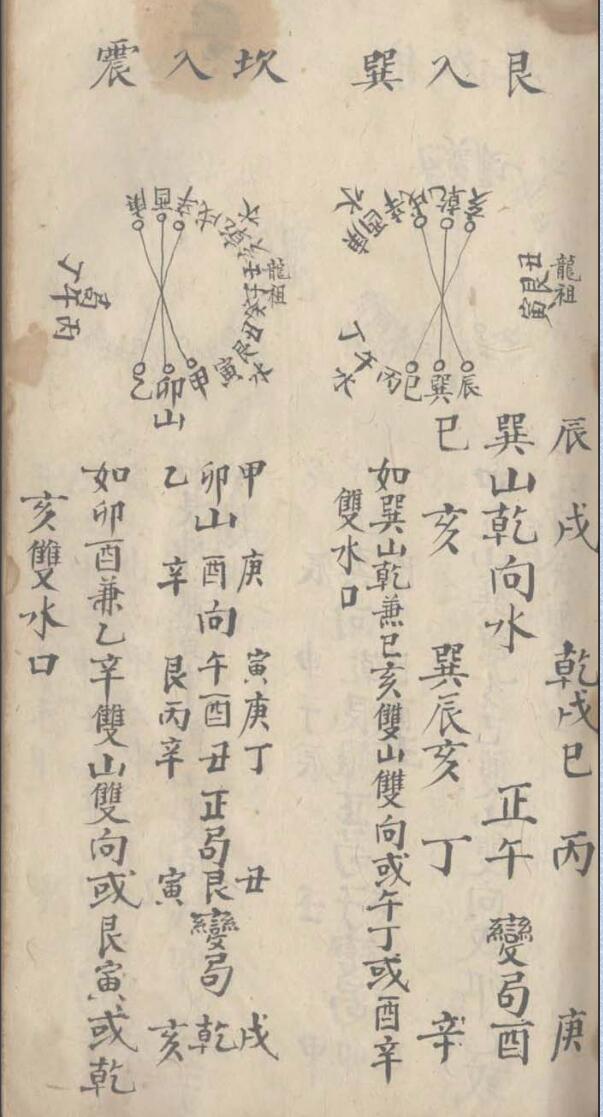 艮入巽
龍祖
丑艮寅
亥乾戌辛酉庚
水
辰巽巳丙午丁
水
辰 戌 乾戌巳 丙 庚
巽山乾向水 正午 變局酉
巳 亥 巽辰亥 丁 辛
如巽山乾兼巳亥雙山雙向或午丁或酉辛
雙水口
坎入震
龍祖
庚酉辛戌乾亥壬子癸丑艮寅甲卯乙
水
水
山
丙午丁
局
甲 庚 寅庚丁 丑 戌
卯山酉向午酉丑正局艮變局乾
乙 辛 艮丙辛 寅 亥
如卯酉兼乙辛雙山雙向或艮寅或乾
亥雙水口